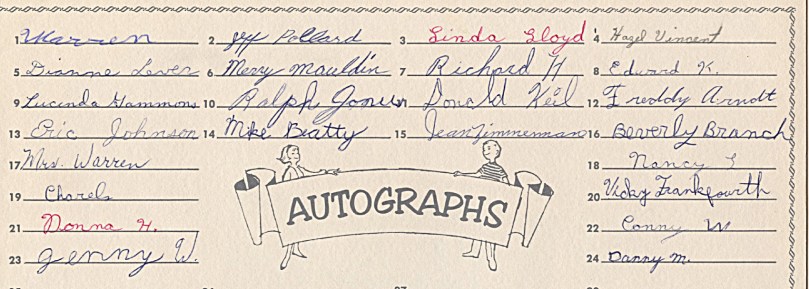 1 Warren 2 Jeff Pollard 3 Linda Lloyd 4 Hazel Vincent
5 Dianne Lever 6 Mary Mauldin 7 Richard H 8 Edward K.
9 Lucinda Hammons 10 Ralph Jones Donald Keil 12 Freddy Arndt
13 Eric Johnson 14 Mike Beatty 15 Jean Zimmerman 16 Beverly Branch
17 Mrs. Warren 18 Nancy
19 20 Vicky Frankfourth
AUTOGRAPHS
21 Donna H. 22 Conny W
23 Jenny W. 24 Danny M.